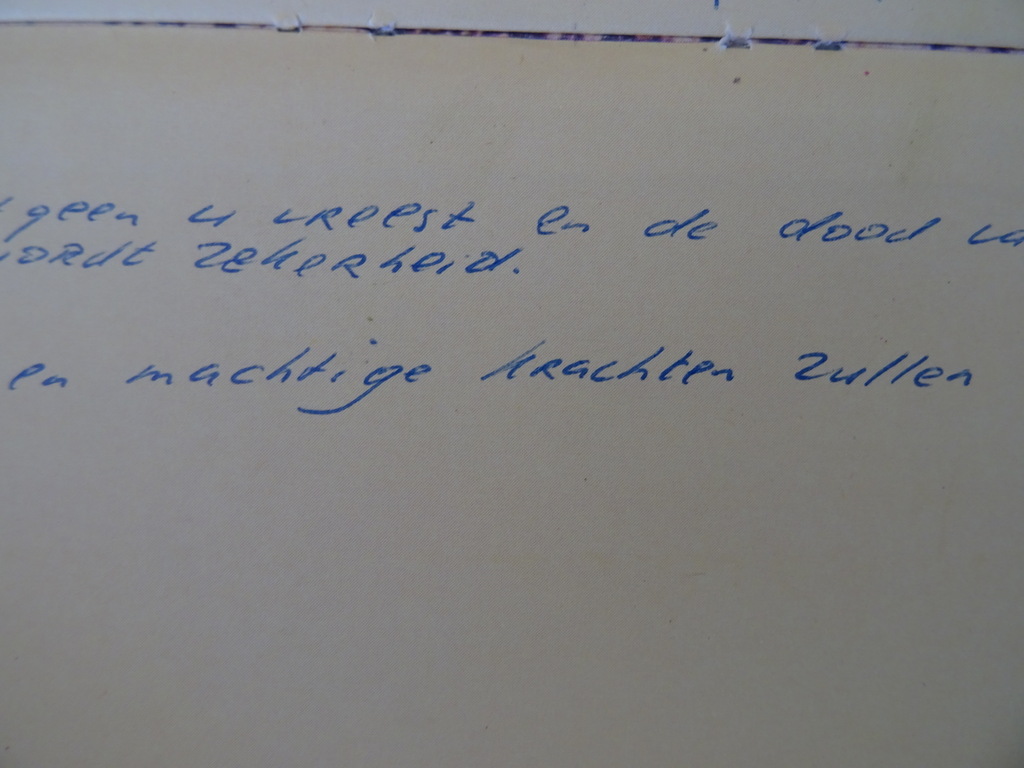 geen u vreest en de dood
zekerheid.
en machtige krachten zullen